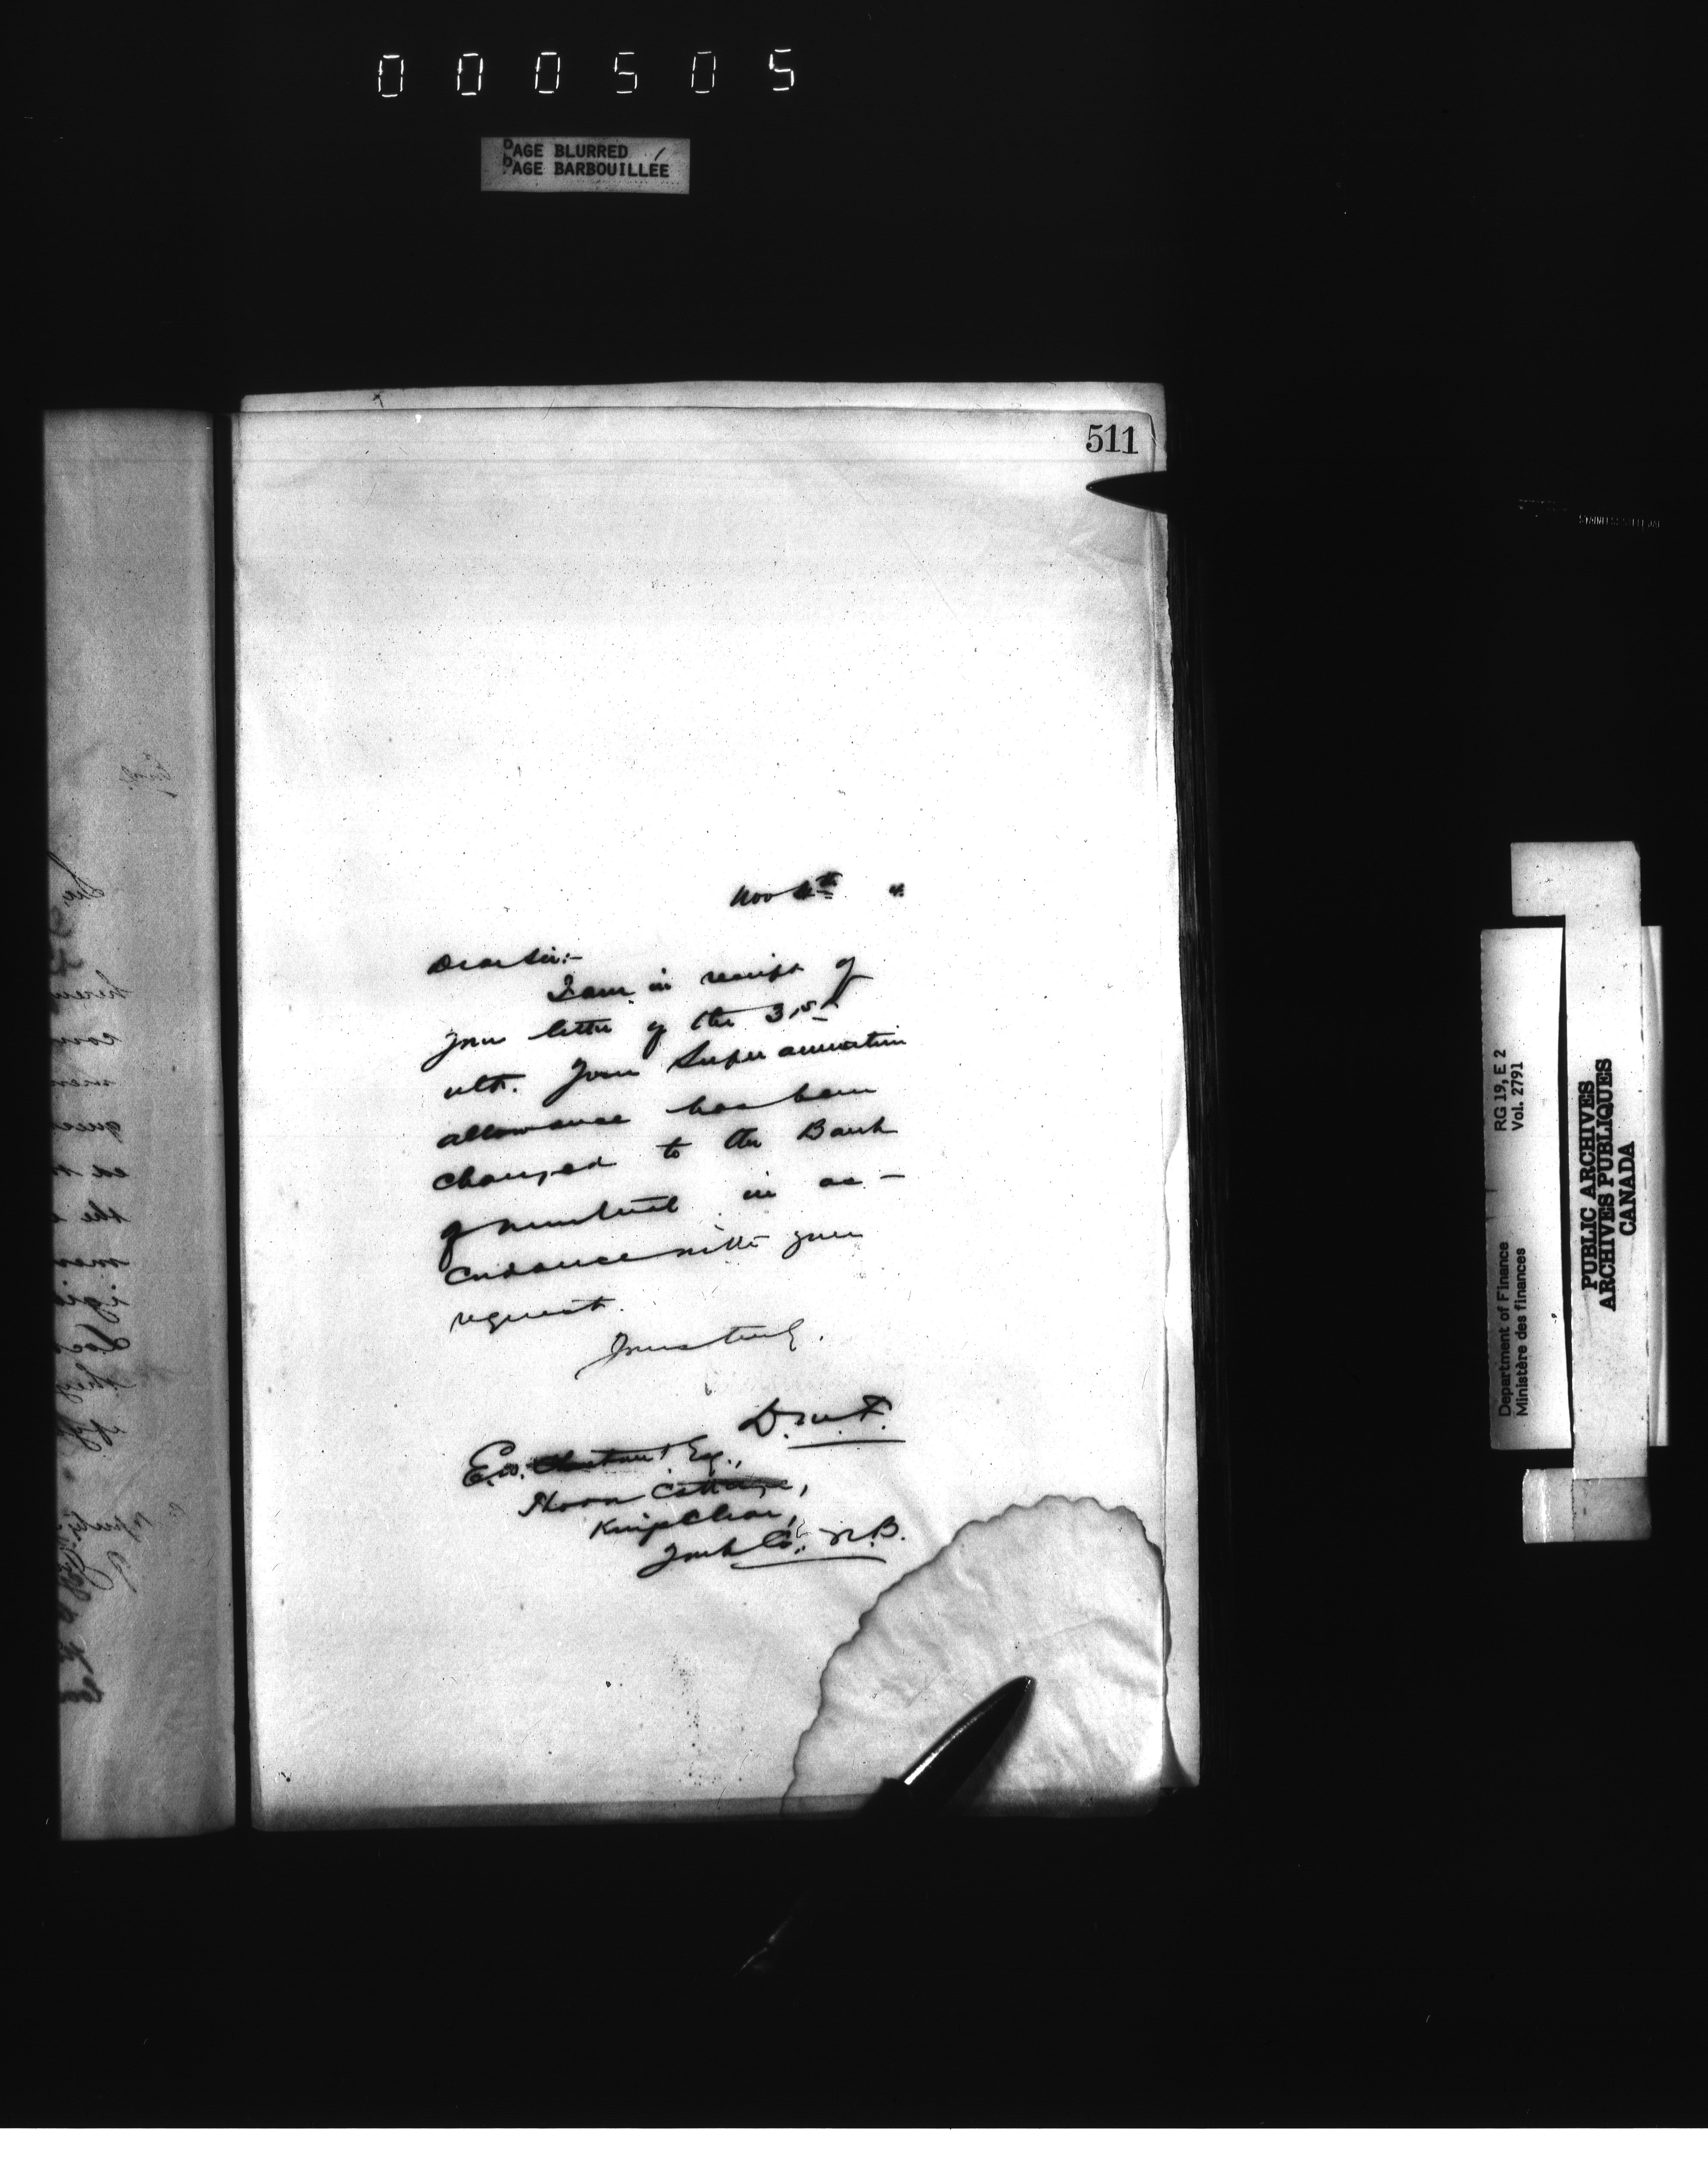 000505
PAGE BLURRED
PAGE BARBOUILLÉE
511
Nov 4th
Dear Sir:-
I am in receipt of
your letter of the 31st
ult. Your Superannuation
allowance has been
changed to the Bank
of Montreal in ac-
cordance with your
request.
Yours truly.
D.M.F.
E.W. Esq.,
Cottage,
Kingsclear,
York Co., N.B.
RG 19, E 2
Vol. 2791
Department of Finance
Ministère des finances
PUBLIC ARCHIVES
ARCHIVES PUBLIQUES
CANADA